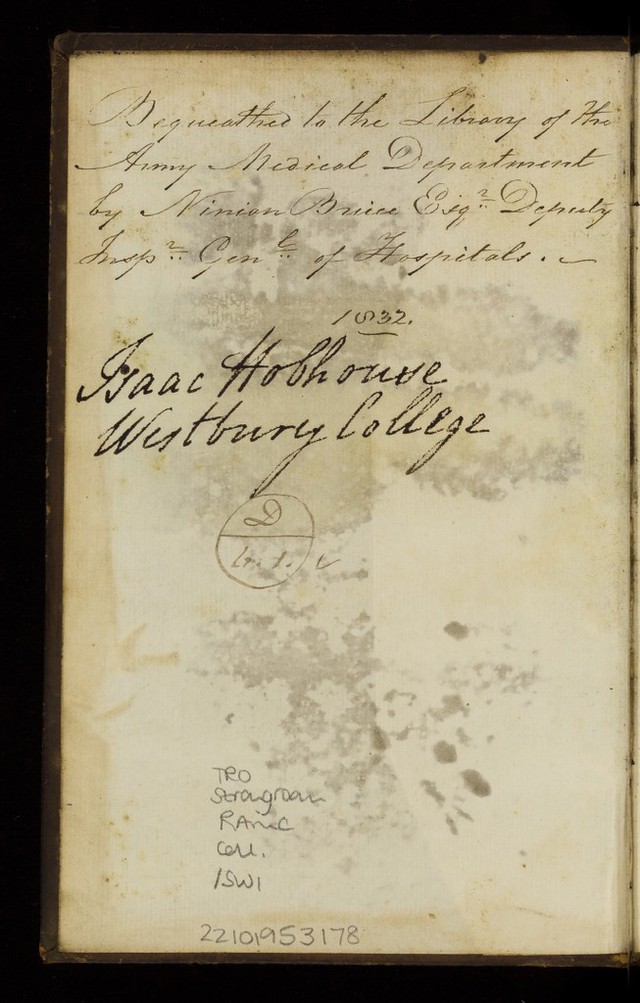 Bequeathed to the Library of the
Army Medical Department
by Ninian Bruce Esqr. Deputy
Inspr. Genl. of Hospitals.
1832.
Isaac Hobhouse
Westbury College
D
4.1.
TRO
Strongroom
RAMC
Coll.
/SW1
22101953178